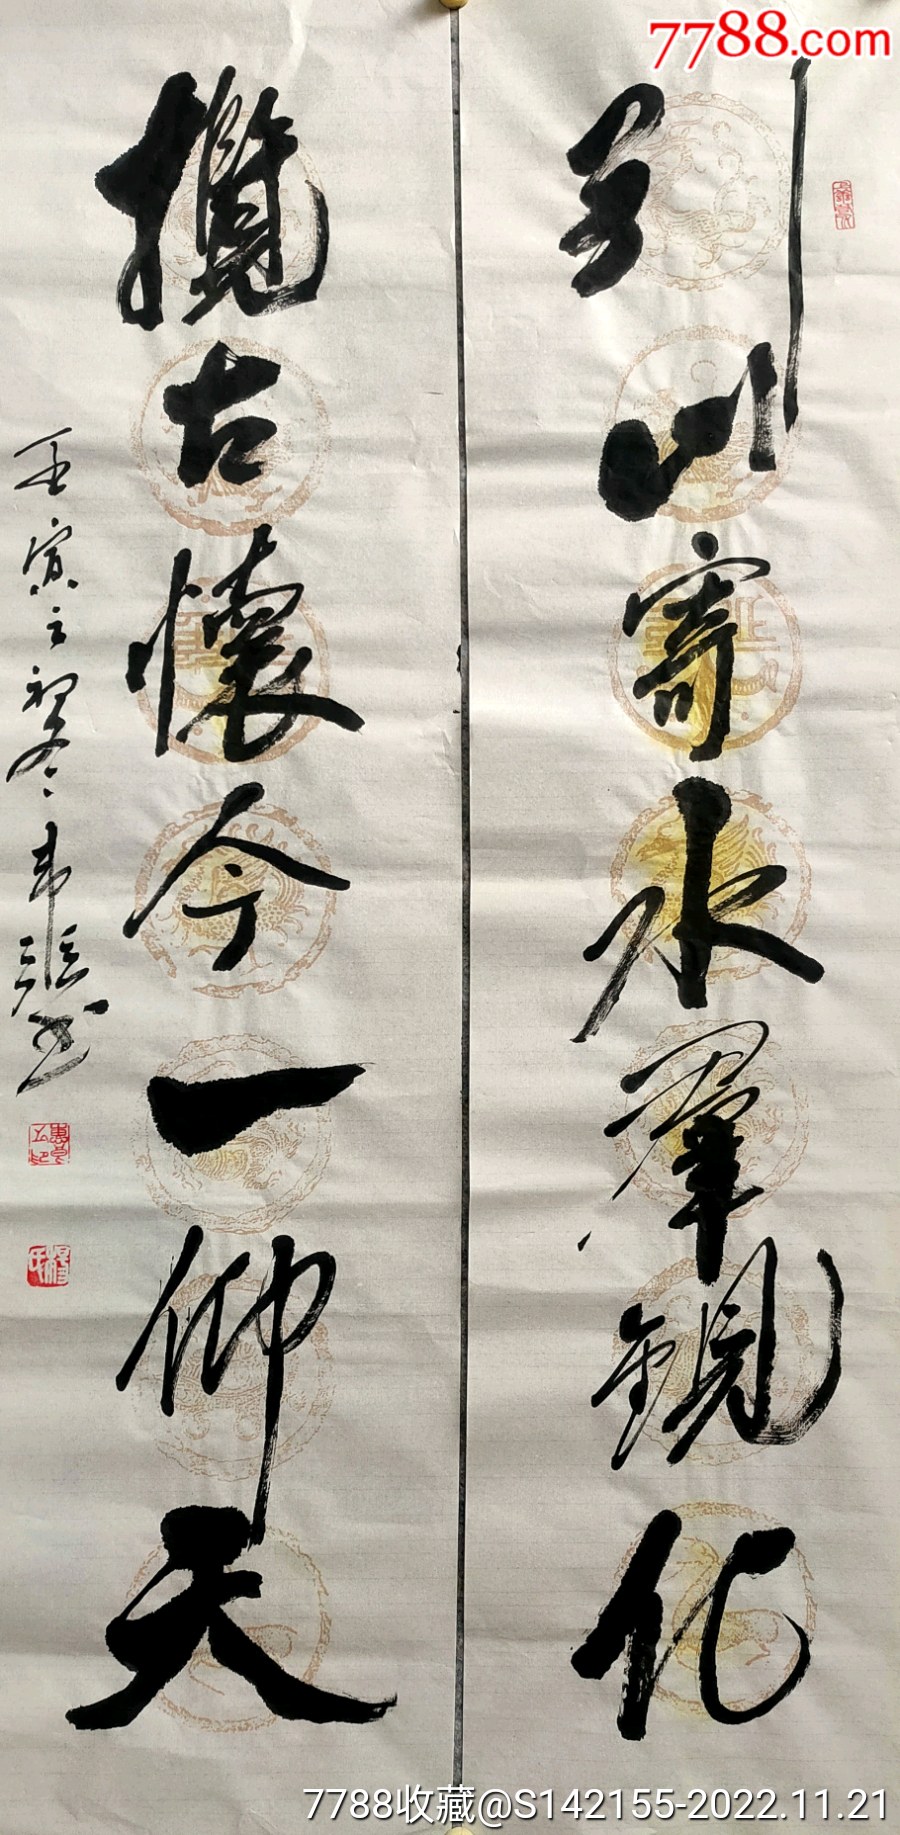 7788.com
引山寄水羣觀化
攬古懷今一仰天
壬寅之初冬
7788收藏@S142155-2022.11.21